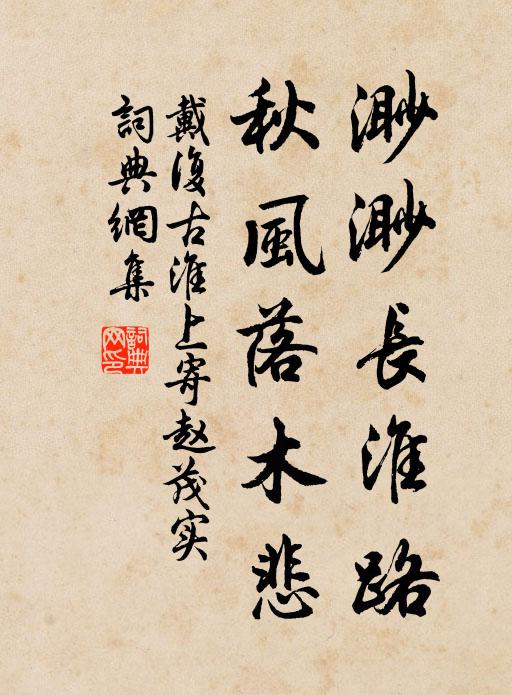 渺渺長淮路
秋風落木悲
戴復古淮上寄赵茂实
詞典網集
詞典
网印